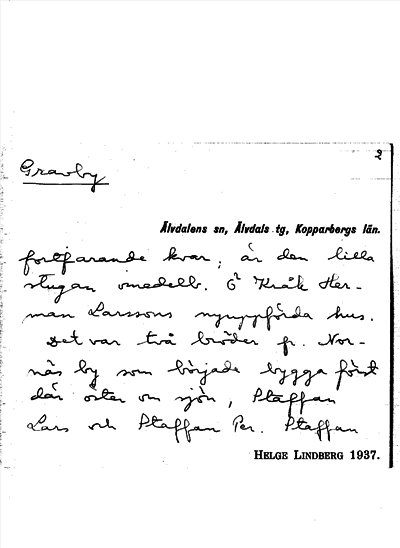 2
Gravby
Älvdalens sn, Älvdals tg, Kopparbergs län.
fortfarande kvar, är den lilla
stugan omedelb. Ö Kråk Her-
man Larssons nyuppförda hus.
Det var två bröder fr. Nor-
näs by som började bygga först
där öster om sjön, Staffan
Lars och Staffan Per. Staffan
HELGE LINDBERG 1937.